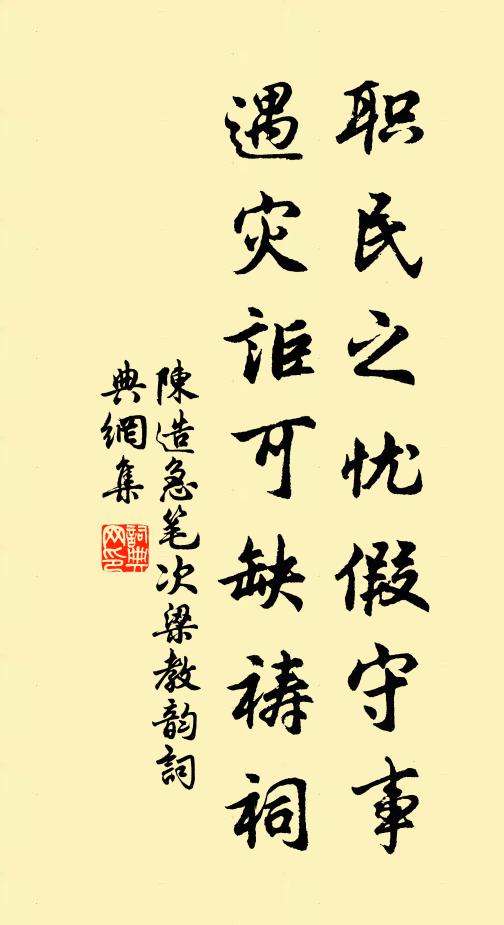 职民之忧假守事
遇灾詎可缺祷祠
陳造急笔次梁教韵詞
典網集
詞典
网印